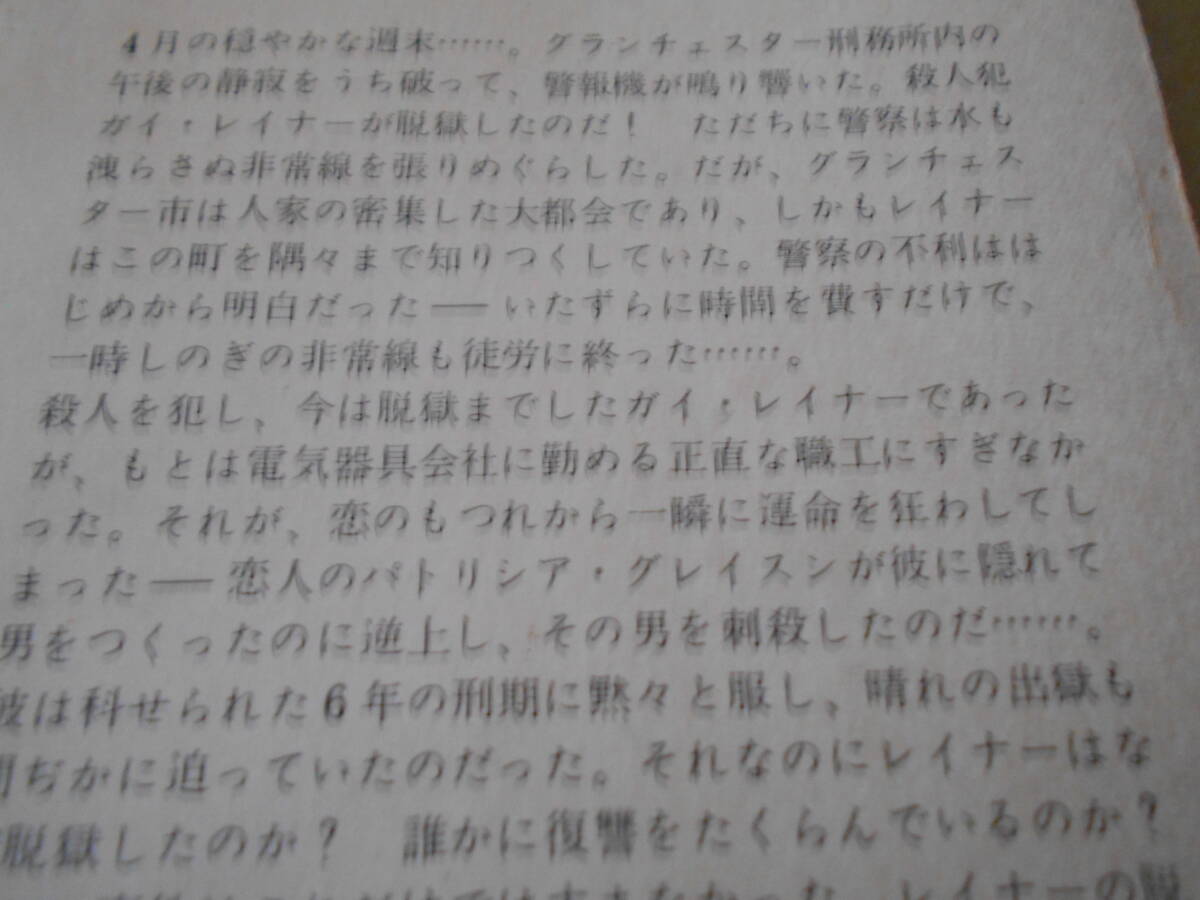 4月の穏やかな週末……。グランチェスター刑務所内の
午後の静寂をうち破って、警報機が鳴り響いた。殺人犯
ガイ・レイナーが脱獄したのだ!　ただちに警察は水も
洩らさぬ非常線を張りめぐらした。だが、グランチェス
ター市は人家の密集した大都会であり、しかもレイナー
はこの町を隅々まで知りつくしていた。警察の不利はは
じめから明白だった――いたずらに時間を費すだけで、
一時しのぎの非常線も徒労に終った……。
殺人を犯し、今は脱獄までしたガイ・レイナーであった
が、もとは電気器具会社に勤める正直な職工にすぎなか
った。それが、恋のもつれから一瞬に運命を狂わしてし
まった――恋人のパトリシア・グレイスンが彼に隠れて
男をつくったのに逆上し、その男を刺殺したのだ……。
彼は科せられた6年の刑期に黙々と服し、晴れの出獄も
間ぢかに迫っていたのだった。それなのにレイナーはな
脱獄したのか?　誰かに復讐をたくらんでいるのか?
なかった。レイナーの脱